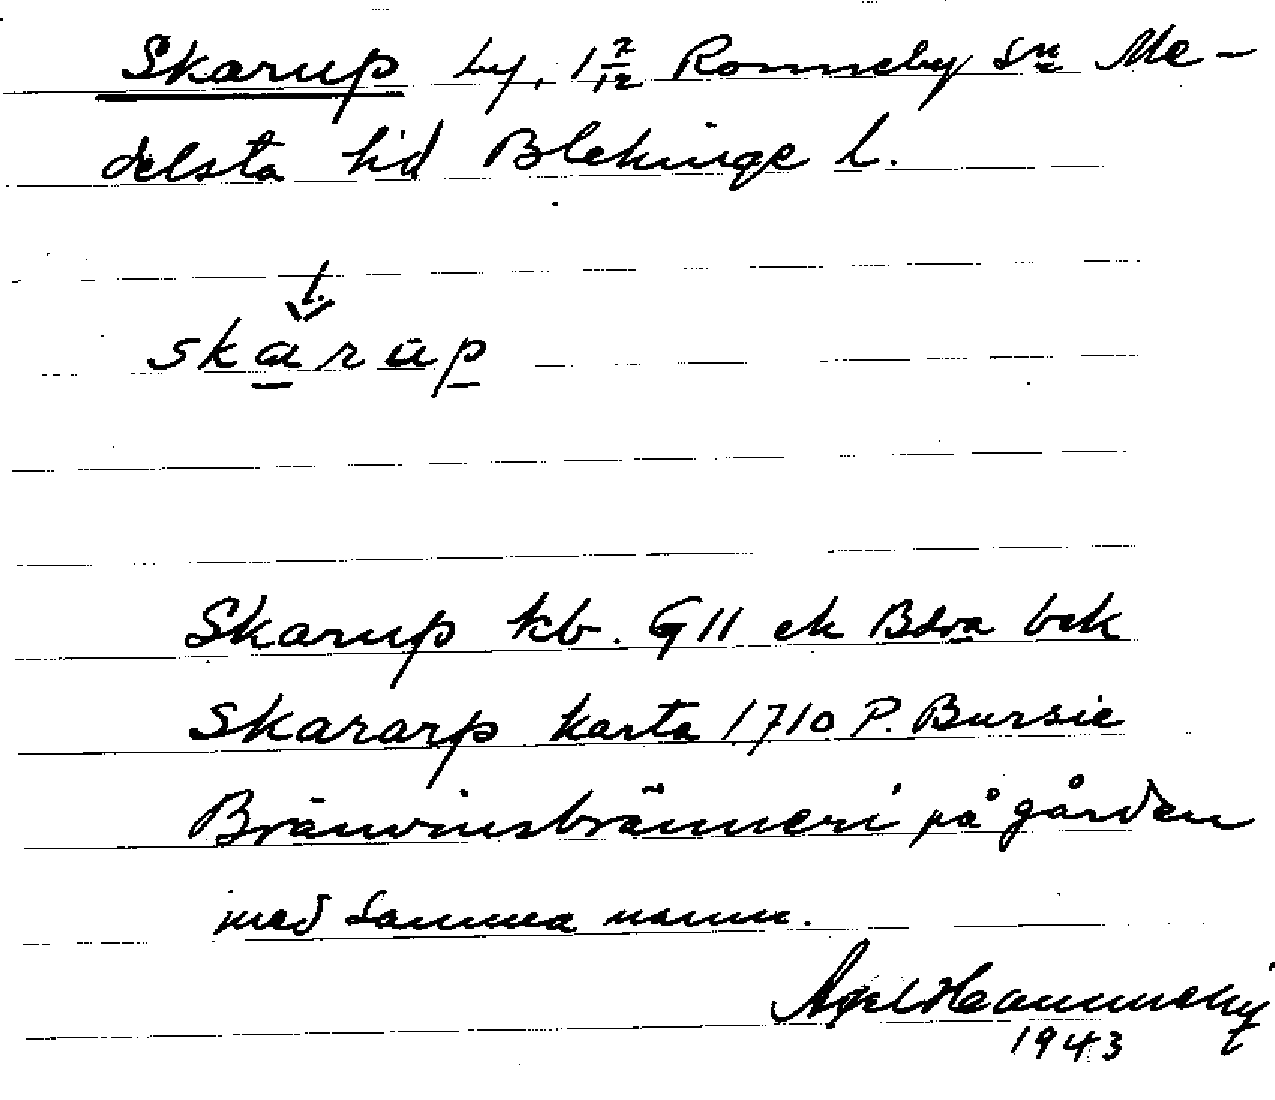 Skarup by, 1 7/12 Ronneby sn Me-
delsta hd Blekinge l.
skarap
Skarup kb. GII ek Bdra bok
Skararp karta 1710 P. Bursie
Brännvinsbränneri på gården
med samma namn.
Axel
1943